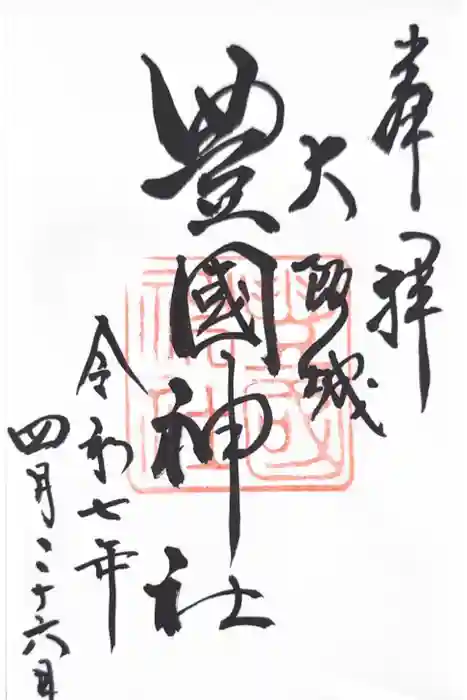 奉拝
大阪城
豊國神社
令和七年
四月二十六日
豊國神社